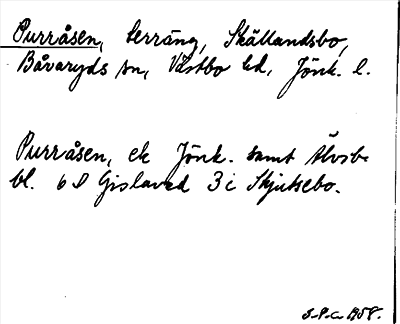 Purråsen, terräng, Skällandsbo,
Båvaryds sn, Västbo hd, Jönk. l.
Purråsen, ek Jönk. samt Älvsb.
bl. 6 D Gislaved 3 i Skjutsebo.
1958.